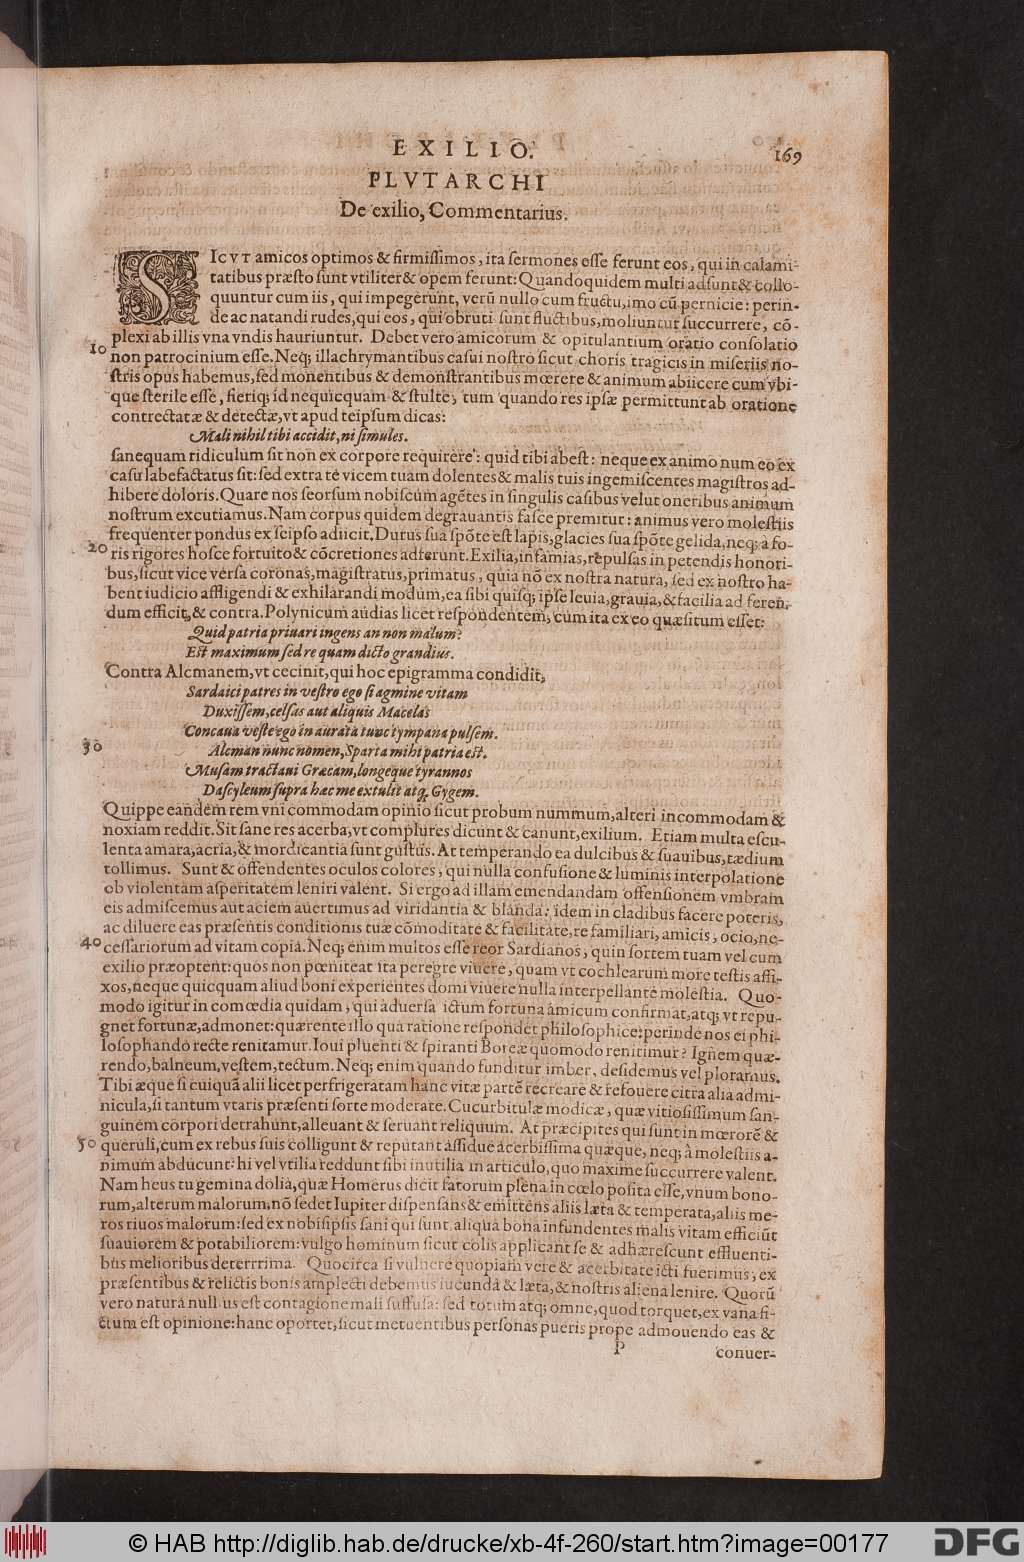 EXILIO.
169
PLVTARCHI
De exilio, Commentarius.
SICVT amicos optimos & firmissimos, ita sermones esse ferunt eos, qui in calami-
tatibus præsto sunt vtiliter & opem ferunt: Quandoquidem multi adsunt & collo-
quuntur cum iis, qui impegerunt, verũ nullo cum fructu, imo cũ pernicie: perin-
de ac natandi rudes, qui eos, qui obruti sunt fluctibus, moliuntur succurrere, cõ-
plexi ab illis vna vndis hauriuntur. Debet vero amicorum & opitulantium oratio consolatio
10 non patrocinium esse. Neq; illachrymantibus casui nostro sicut choris tragicis in miseriis no-
stris opus habemus, sed monentibus & demonstrantibus mœrere & animum abiicere cum vbi-
que sterile esse, fieriq; id nequicquam & stulte, tum quando res ipsæ permittunt ab oratione
contrectatæ & detectæ, vt apud teipsum dicas:
Mali nihil tibi accidit, ni simules.
sanequam ridiculum sit non ex corpore requirere: quid tibi abest: neque ex animo num eo ex
casu labefactatus sit: sed extra te vicem tuam dolentes & malis tuis ingemiscentes magistros ad-
hibere doloris. Quare nos seorsum nobiscum agẽtes in singulis casibus velut oneribus animum
nostrum excutiamus. Nam corpus quidem degrauantis fasce premitur: animus vero molestiis
frequenter pondus ex seipso adiicit. Durus sua spõte est lapis, glacies sua spõte gelida, neq; a fo-
20 ris rigores hosce fortuito & cõcretiones adferunt. Exilia, infamias, repulsas in petendis honori-
bus, sicut vice versa coronas, magistratus, primatus, quia nõ ex nostra natura, sed ex nostro ha-
bent iudicio affligendi & exhilarandi modum, ea sibi quisq; ipse leuia, grauia, & facilia ad feren-
dum efficit, & contra. Polynicum audias licet respondentem, cum ita ex eo quæsitum esset:
Quid patria priuari ingens an non malum?
Est maximum sed re quam dicto grandius.
Contra Alcmanem, vt cecinit, qui hoc epigramma condidit,
Sardaici patres in vestro ego si agmine vitam
Duxissem, celsas aut aliquis Macelas
Concaua veste ego in aurata tunc tympana pulsem.
30 Alcman nunc nomen, Sparta mihi patria est.
Musam tractaui Græcam, longeque tyrannos
Dascyleum supra hæc me extulit atq, Gygem.
Quippe eandem rem vni commodam opinio sicut probum nummum, alteri incommodam &
noxiam reddit. Sit sane res acerba, vt complures dicunt & canunt, exilium. Etiam multa escu-
lenta amara, acria, & mordicantia sunt gustus. At temperando ea dulcibus & suauibus, tædium
tollimus. Sunt & offendentes oculos colores, qui nulla confusione & luminis interpolatione
ob violentam asperitatem leniri valent. Si ergo ad illam emendandam offensionem vmbram
eis admiscemus aut aciem auertimus ad viridantia & blanda: idem in cladibus facere poteris,
ac diluere eas præsentis conditionis tuæ cõmoditate & facilitate, re familiari, amicis, ocio, ne-
40 cessariorum ad vitam copia. Neq; enim multos esse reor Sardianos, quin sortem tuam vel cum
exilio præoptent: quos non pœniteat ita peregre viuere, quam vt cochlearum more testis affi-
xos, neque quicquam aliud boni experientes domi viuere nulla interpellante molestia. Quo-
modo igitur in comœdia quidam, qui aduersa ictum fortuna amicum confirmat, atq; vt repu-
gnet fortunæ, admonet: quærente illo qua ratione respondet philosophice: perinde nos ei phi-
losophando recte renitamur. Ioui pluenti & spiranti Boreæ quomodo renitimur? Ignem quæ-
rendo, balneum, vestem, tectum. Neq; enim quando funditur imber, desidemus vel ploramus.
Tibi æque si cuiquã alii licet perfrigeratam hanc vitæ partẽ recreare & refouere citra alia admi-
nicula, si tantum vtaris præsenti sorte moderate. Cucurbitulæ modicæ, quæ vitiosissimum san-
guinem corpori detrahunt, alleuant & seruant reliquum. At præcipites qui sunt in mœrorẽ &
50 queruli, cum ex rebus suis colligunt & reputant assidue acerbissima quæque, neq; à molestiis a-
nimum abducunt: hi vel vtilia reddunt sibi inutilia in articulo, quo maxime succurrere valent.
Nam heus tu gemina dolia, quæ Homerus dicit fatorum plena in cœlo posita esse, vnum bono-
rum, alterum malorum, nõ sedet Iupiter dispensans & emittens aliis læta & temperata, aliis me-
ros riuos malorum: sed ex nobisipsis sani qui sunt aliqua bona infundentes malis vitam efficiũt
suauiorem & potabiliorem: vulgo hominum sicut colis applicant se & adhærescunt effluenti-
bus melioribus deterrima. Quocirca si vulnere quopiam vere & acerbitate icti fuerimus, ex
præsentibus & relictis bonis amplecti debemus iucunda & læta, & nostris aliena lenire. Quorũ
vero natura nullus est contagione mali suffusa: sed totum atq; omne, quod torquet, ex vana fi-
ctum est opinione: hanc oportet, sicut metuentibus personas pueris prope admouendo eas &
P conuer-
© HAB http://diglib.hab.de/drucke/xb-4f-260/start.htm?image=00177
DFG